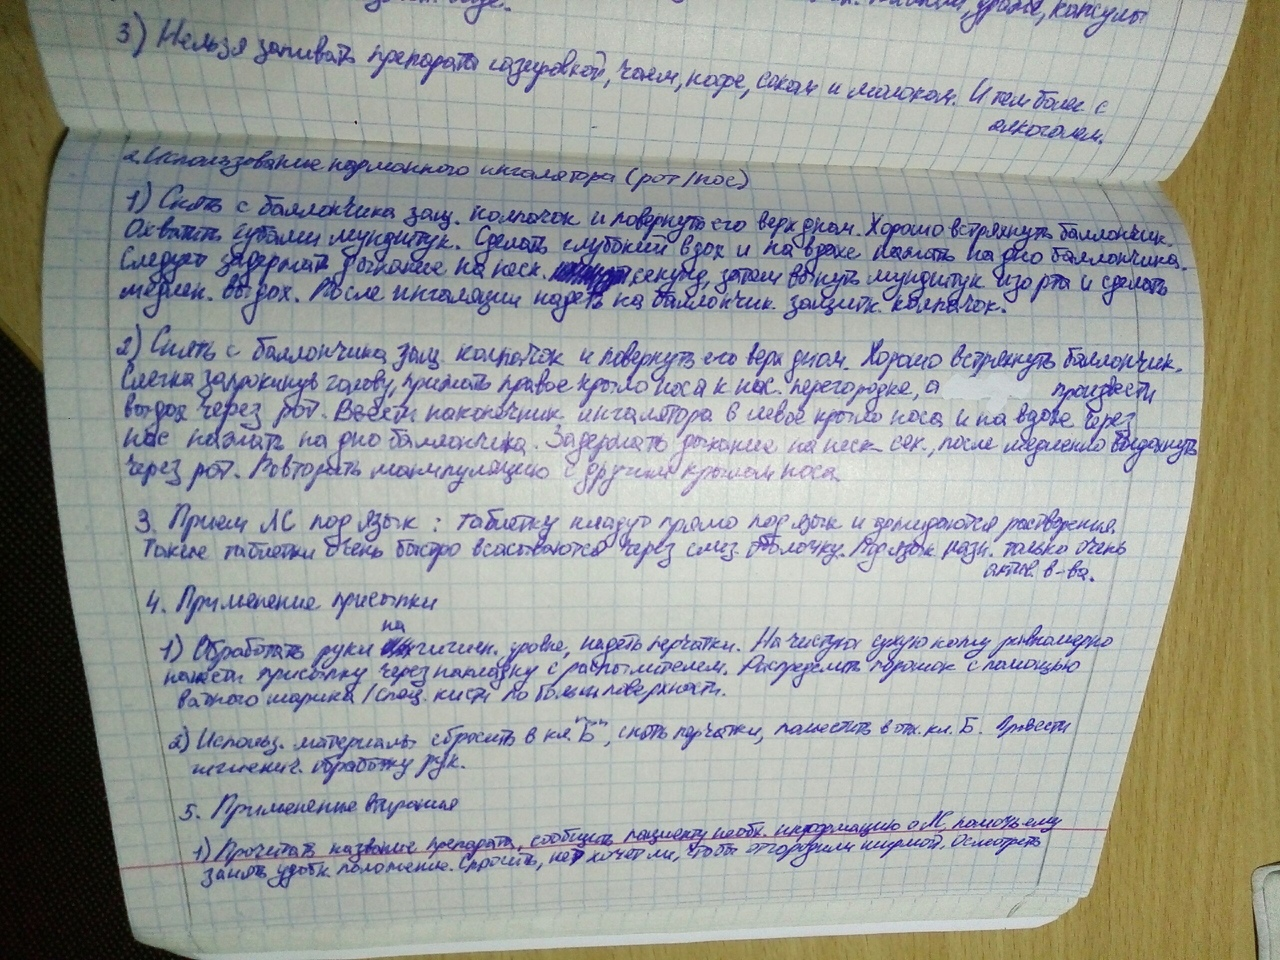 капсулы
3) Нельзя запивать препараты газировкой, чаем, кофе, соком и молоком. И тем более с
алкоголем.
2. Использование карманного ингалятора (рот/нос)
1) Снять с баллончика защ. колпачок и повернуть его верх дном. Хорошо встряхнуть баллончик.
Охватить губами мундштук. Сделать глубокий вдох и на вдохе нажать на дно баллончика.
Следует задержать дыхание на неск. секунд, затем вынуть мундштук изо рта и сделать
медлен. выдох. После ингаляции надеть на баллончик защитн. колпачок.
2) Снять с баллончика защ. колпачок и повернуть его верх дном. Хорошо встряхнуть баллончик.
Слегка запрокинув голову, прижать правое крыло носа к нос. перегородке, а произвести
выдох через рот. Ввести наконечник ингалятора в левое крыло носа и на вдохе через
нос нажать на дно баллончика. Задержать дыхание на неск. сек., после медленно выдохнуть
через рот. Повторить манипуляцию с другим крылом носа.
3. Прием ЛС под язык: таблетку кладут прямо под язык и дожидаются растворения.
Такие таблетки очень быстро всасываются через слиз. оболочку. Под язык назн. только очень
актив. в-ва.
4. Применение присыпки
1) Обработать руки на гигиен. уровне, надеть перчатки. На чистую сухую кожу равномерно
нанести присыпку через накладку с распылителем. Распределить порошок с помощью
ватного шарика / спец. кисти по больш поверхности.
2) Использ. материалы сбросить в кл. "Б", снять перчатки, поместить в отх. кл. Б. Провести
гигиенич. обработку рук.
5. Применение
1) Прочитать название препарата, сообщить пациенту необх. информацию о ЛС, помочь ему
занять удобн. положение. Спросить, не хочет ли, чтобы отгородили ширмой. Осмотреть